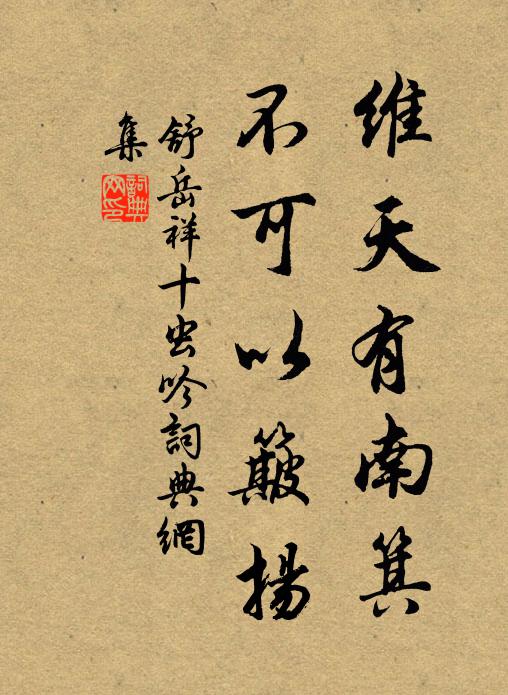 維天有南箕
不可以簸揚
舒岳祥十虫吟詞典網
集
詞典
網印